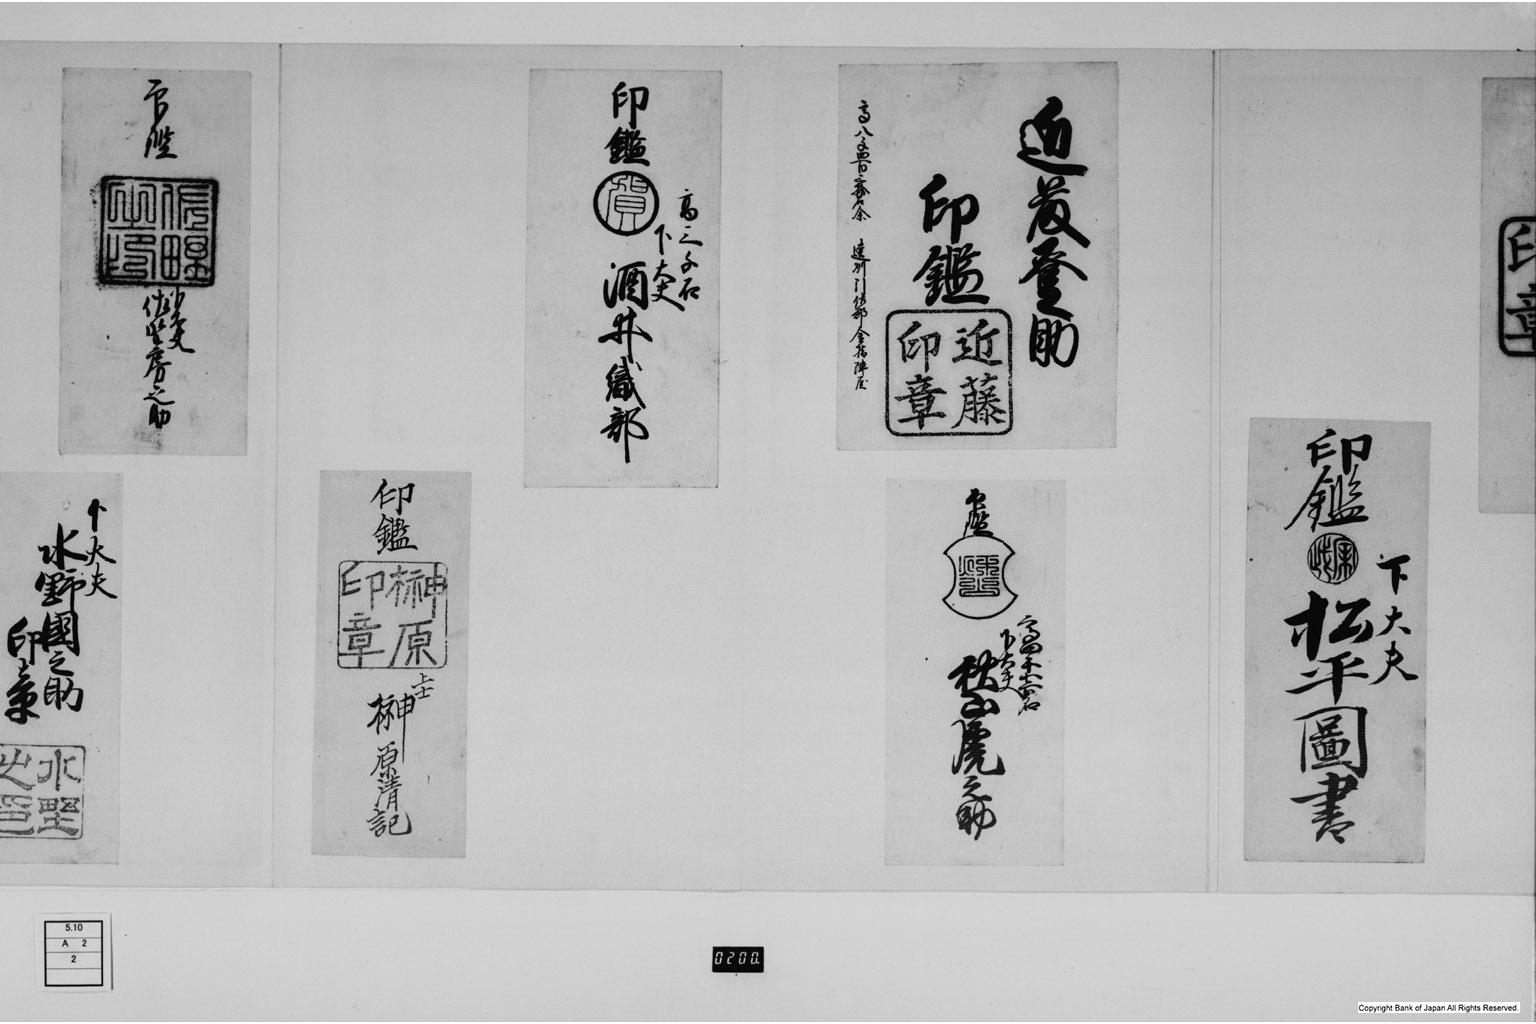 印章
印鑑
下大夫
松平圖書
近藤登之助
印鑑
近藤
印章
印鑑
下大夫
秋山虎之助
印鑑
賀
高三千石
下大夫
酒井織部
印鑑
榊原
印章
上士
榊原清記
印鑑
佐野房之助
下大夫
水野國之助
印章
水野
之印
5.10
A 2
2
0200
Copyright Bank of Japan All Rights Reserved.